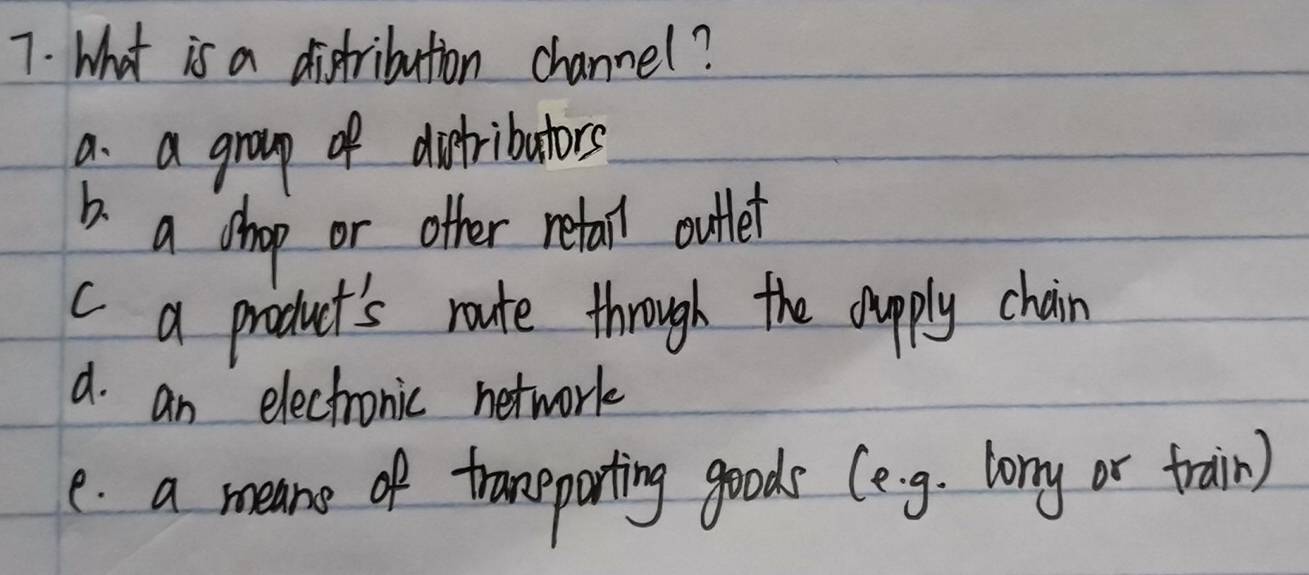 7. What is a distribution channel?
a. a group of distributors
b. a shop or other retail outlet
c a product's route through the supply chain
d. an electronic network
e. a means of transporting goods (e.g. lorry or train)